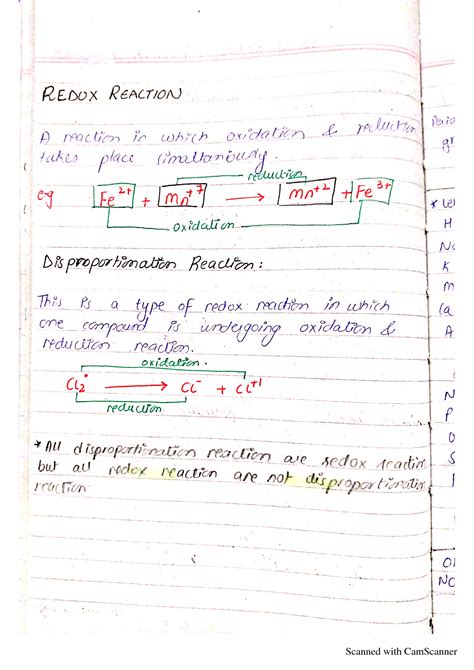 REDOX REACTION
A reaction in which oxidation & reduction
takes place simaltaniously.
reduction
eg Fe2+ + Mn+7 → Mn+2 + Fe3+
oxidation
Disproportionation Reaction:
This is a type of redox reaction in which
one compound is undergoing oxidation &
reduction reaction.
oxidation.
Cl2° → Cl- + Cl+1
reduction
* All disproportionation reaction are redox reaction
but all redox reaction are not disproportionation
reaction
gr
H
K
m
A
N
P
S
NO
Scanned with CamScanner